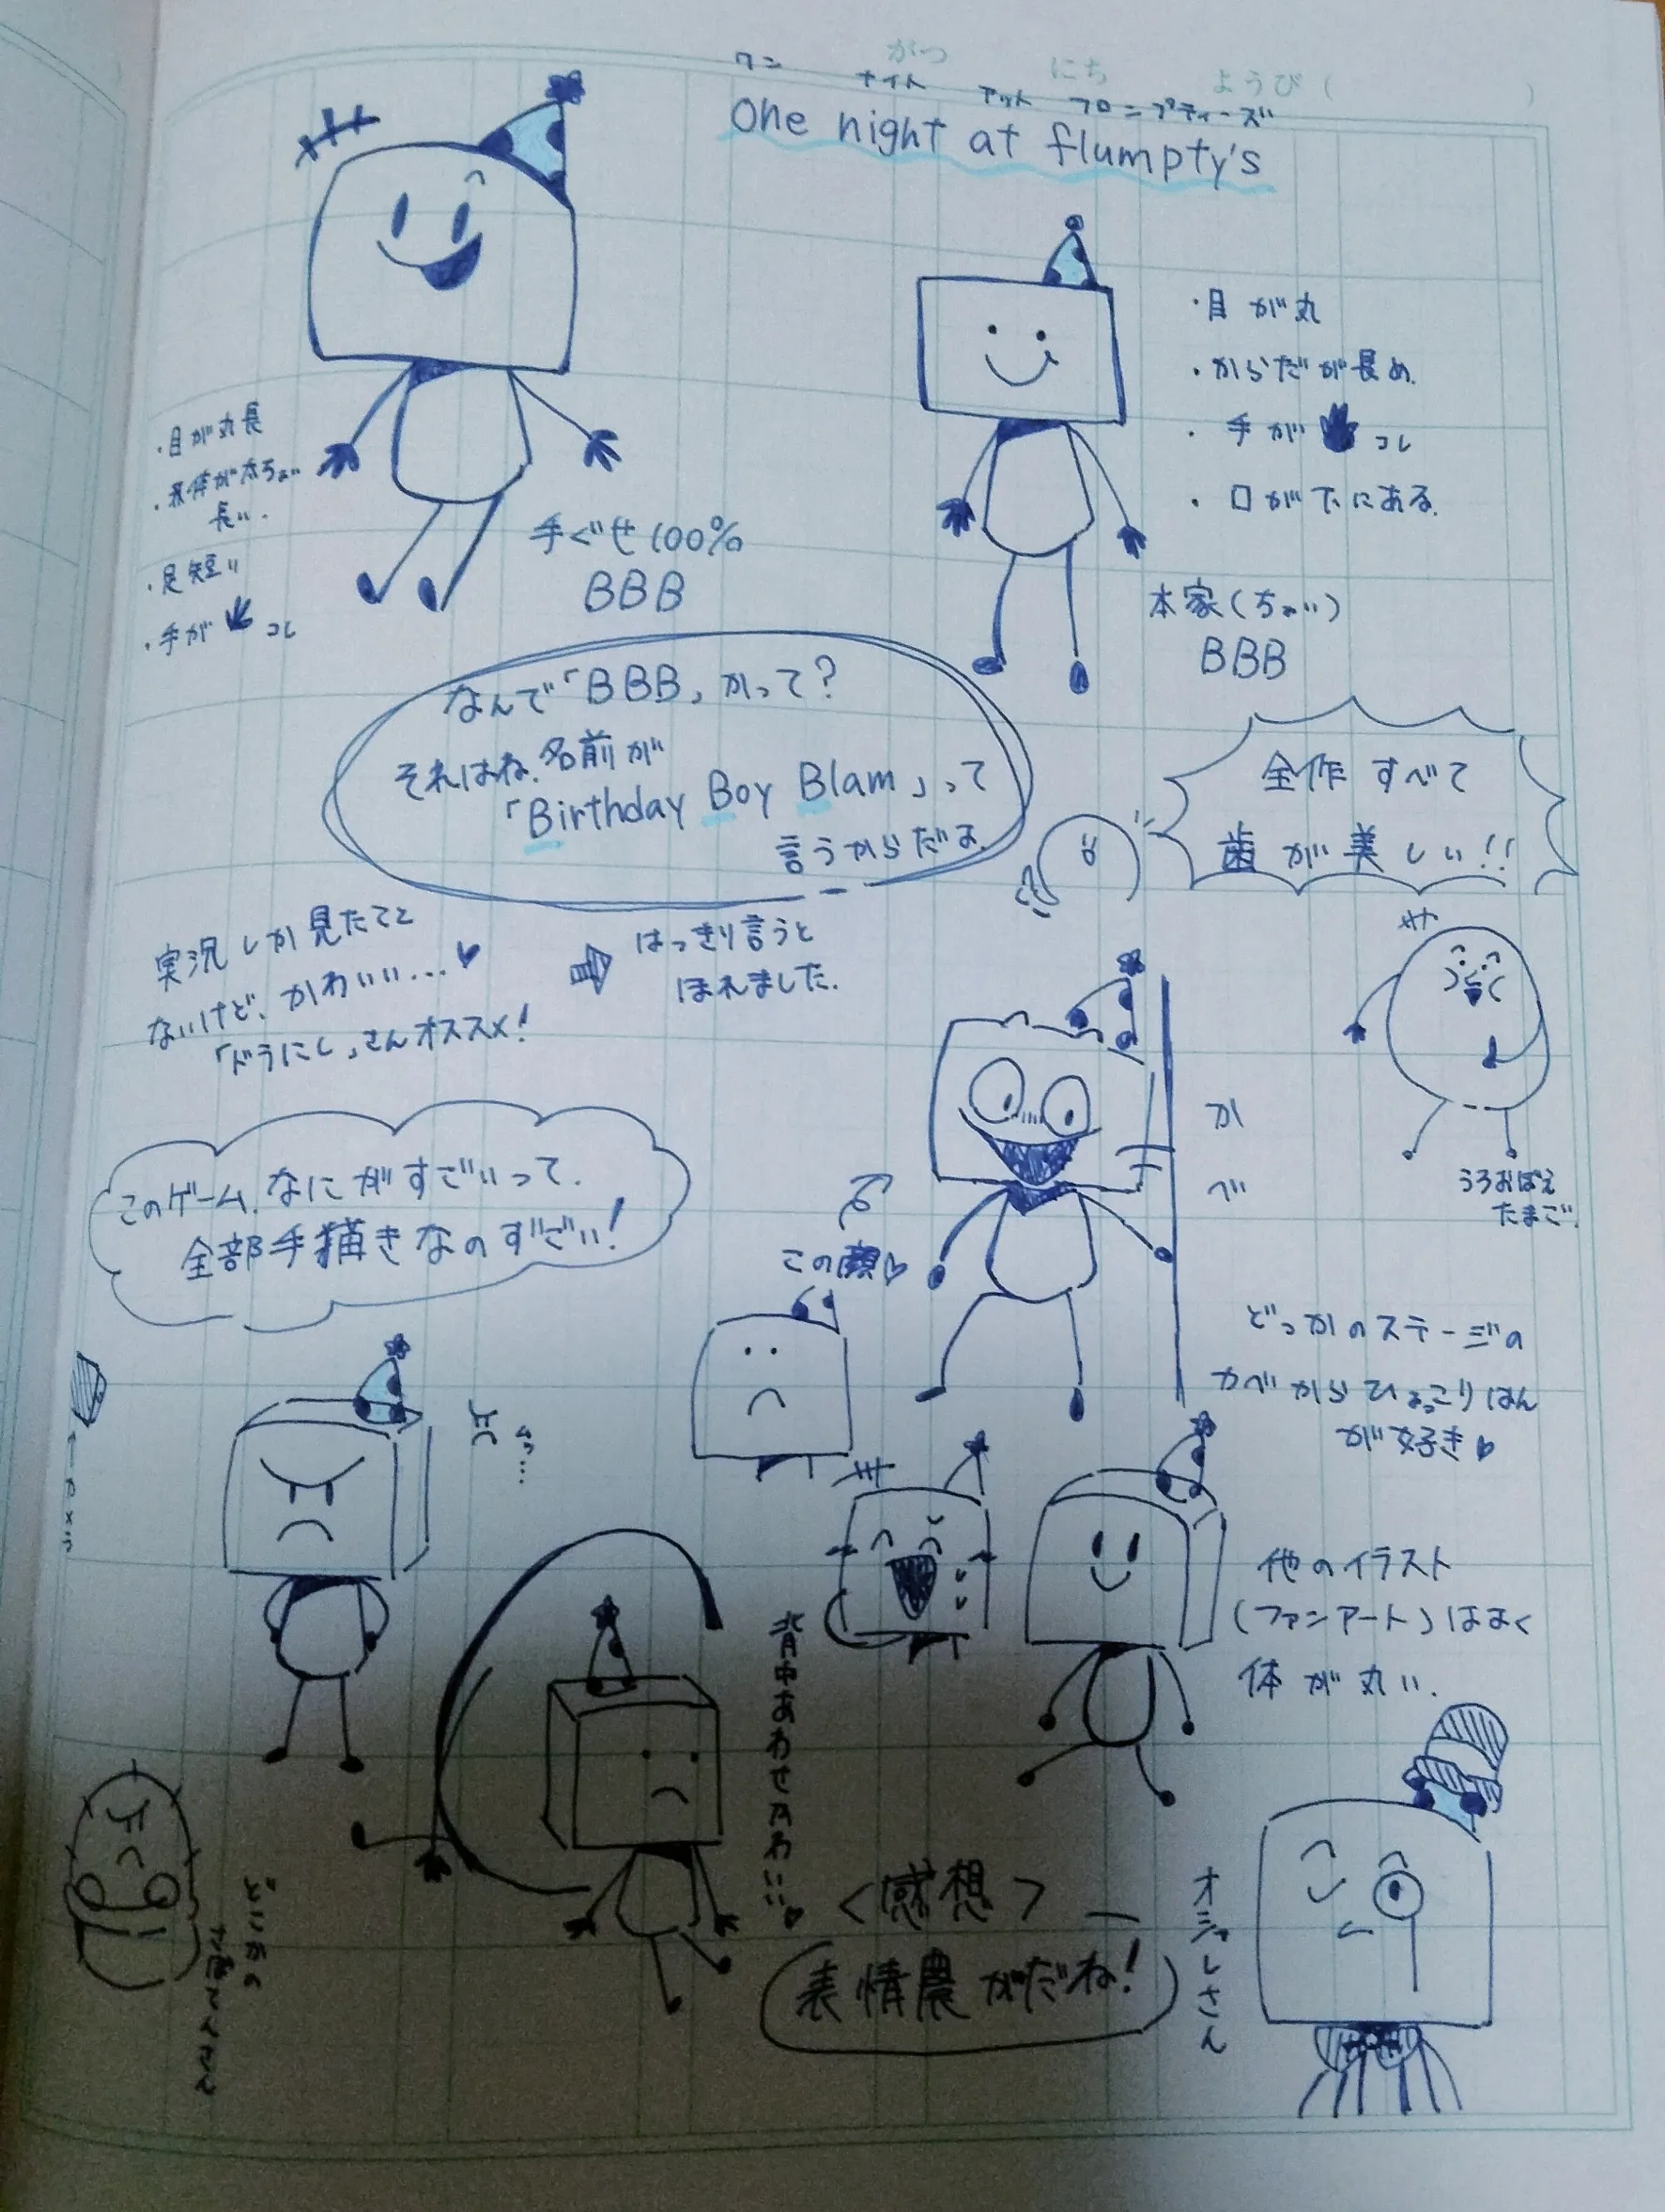 がつ にち ようび ( )
ワン ナイト アット フロンプティーズ
One night at flumpty's
・目が丸
・からだが長め.
・手が コレ
・口が下にある.
本家(ちょい)
BBB
・目が丸長
長い.
・足短い
・手が コレ
手ぐせ100%
BBB
なんで「BBB」かって?
それはね、名前が
「Birthday Boy Blam」って
言うからだよ.
全作すべて
歯が美しい!!
実況しか見たこと
ないけど、かわいい…♥
「ドラにし」さんオススメ!
はっきり言うと
ほれました.
うろおぼえ
たまご.
かべ
この顔♡
このゲーム、なにがすごいって、
全部手描きなのすごい!
どっかのステージの
かべからひょっこりはん
が好き♥
ムゥ…
背中あわせかわいい♥
他のイラスト
(ファンアート)はよく
体が丸い.
<感想>
表情農がだね!
オジャレさん